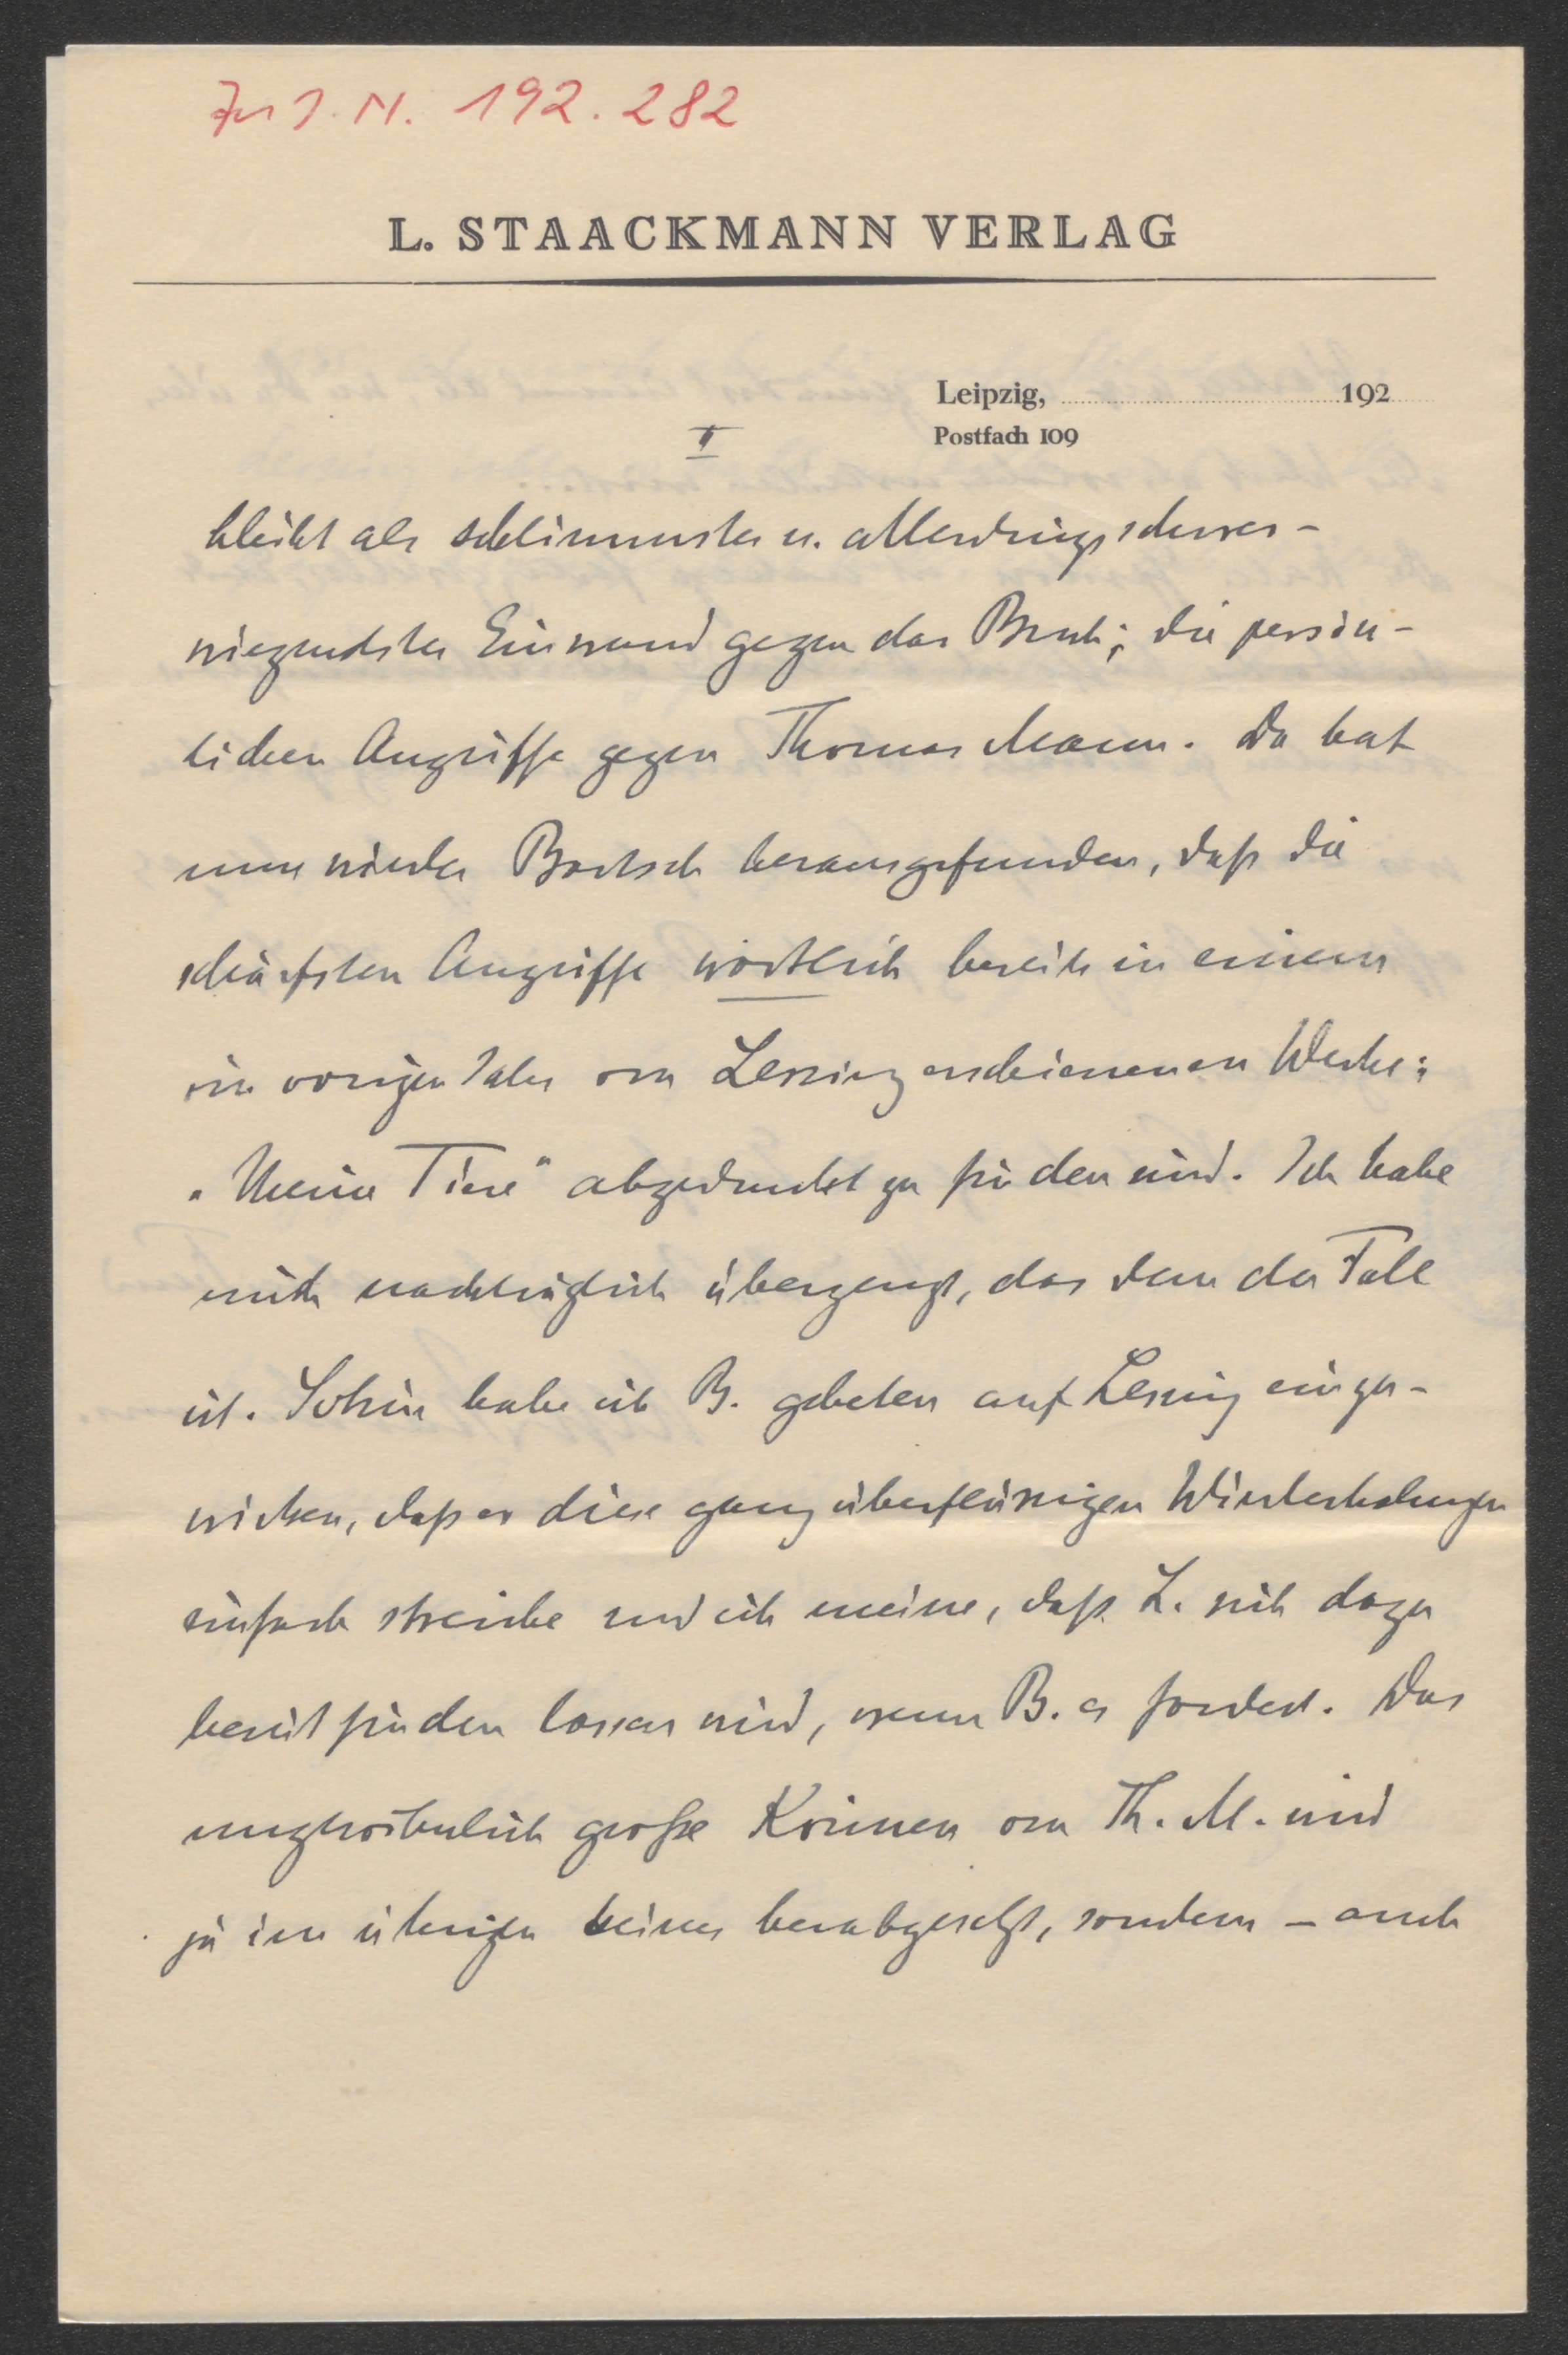 Zu I.N. 192.282
L. STAACKMANN VERLAG
Leipzig, 192
Postfach 109
II
bleibt als schlimmster u. allerdings schwer-
wiegendster Einwand gegen das Buch; die persön-
lichen Angriffe gegen Thomas Mann. Da hat
nun wieder Bartsch herausgefunden, daß die
schärfsten Angriffe wörtlich bereits in einem
im vorigen Jahr von Lessing erschienenen Werke:
„Meine Tiere" abgedruckt zu finden sind. Ich habe
mich nachträglich überzeugt, das dem der Fall
ist. Sohin habe ich B. gebeten auf Lessing einzu-
wirken, daß er diese ganz überflüssigen Wiederholungen
einfach streiche und ich meine, daß L. sich dazu
bereit finden lassen wird, wenn B. es fordert. Das
ungewöhnlich große Können von Th. M. wird
ja im übrigen keines herabgesetzt, sondern – auch